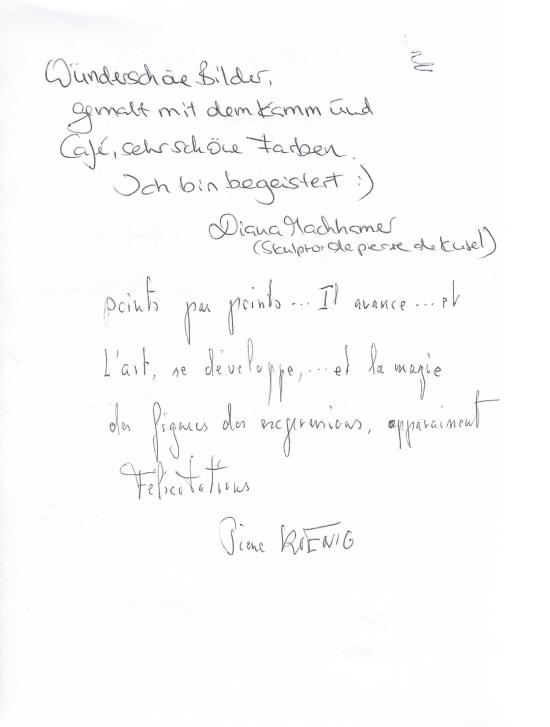 Wünderschöne Bilder,
gemalt mit dem Kamm und
Café, sehr schöne Farben.
Ich bin begeistert :)
Diana
(Sculptor de pierre de Kusel)
points par points... Il avance... et
L'art, se développe,... et la magie
des figures des expressions, apparaissent
Félicitations
Pierre KOENIG